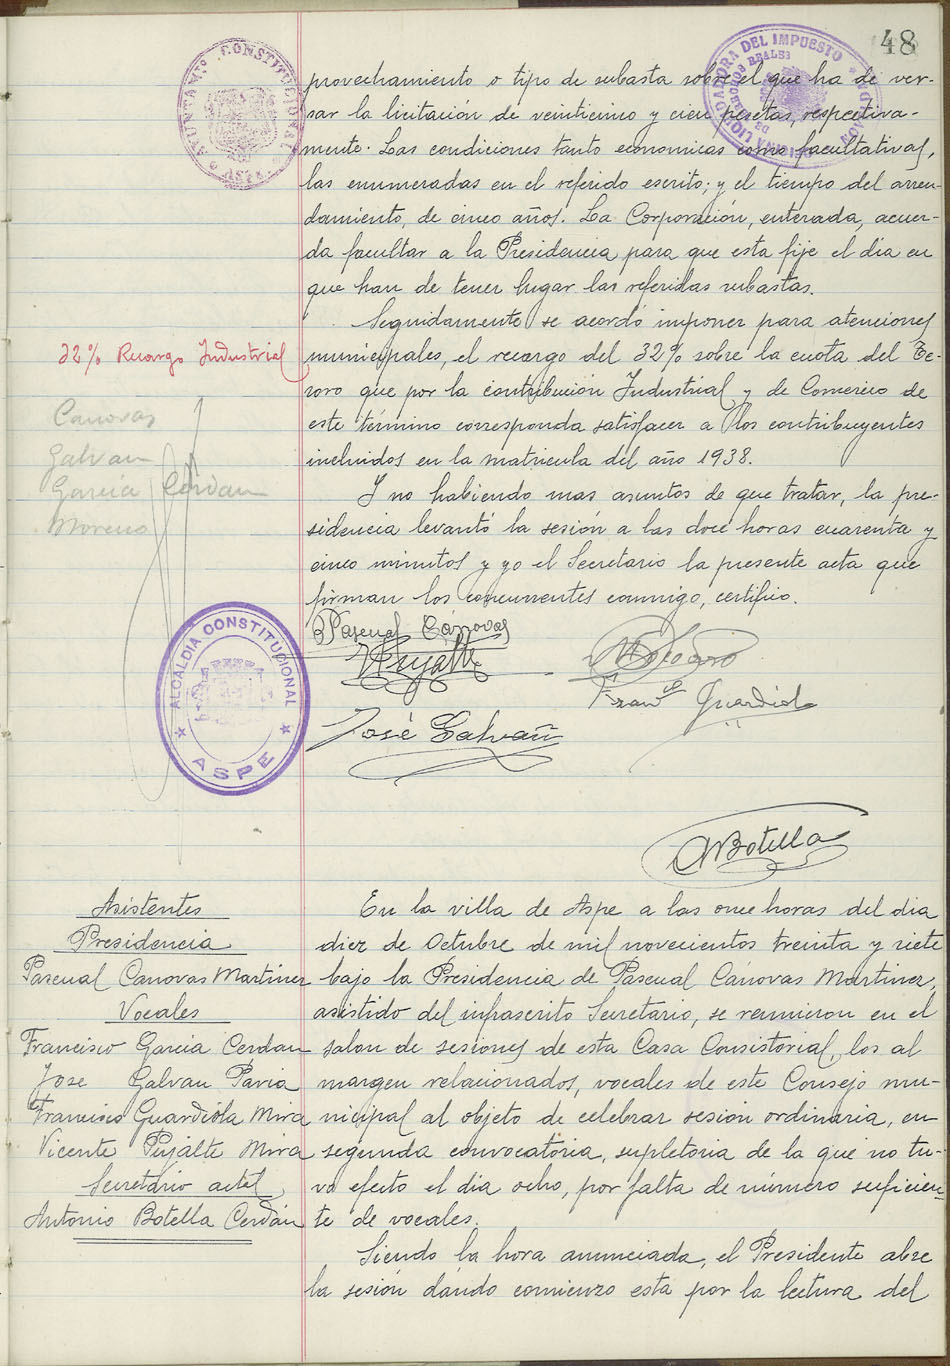 48
AYUNTAMTO. CONSTITUCIONAL
ASPE
OFICINA LIQUIDADORA DEL IMPUESTO
DE DERECHOS REALES
NOVELDA
provechamiento o tipo de subasta sobre el que ha de ver-
sar la licitación de veinticinco y cien pesetas, respectiva-
mente. Las condiciones tanto economicas como facultativas,
las enumeradas en el referido escrito; y el tiempo del arren-
damiento, de cinco años. La Corporación, enterada, acuer-
da facultar a la Presidencia para que esta fije el día en
que han de tener lugar las referidas subastas.
Seguidamente se acordó imponer para atenciones
32% Recargo Industrial
municipales, el recargo del 32% sobre la cuota del Te-
soro que por la contribución Industrial y de Comercio de
este término corresponda satisfacer a los contribuyentes
incluidos en la matricula del año 1938.
Canovas
Galvan
Garcia Cerdan
Moreno
Y no habiendo mas asuntos de que tratar, la pre-
sidencia levantó la sesión a las doce horas cuarenta y
cinco minutos y yo el Secretario la presente acta que
firman los concurrentes conmigo, certifico.
Pascual Cánovas
VPujalte
Franco Guardiola
José Galvañ
ALCALDIA CONSTITUCIONAL
ASPE
ABotella
Asistentes
Presidencia
Pascual Canovas Martinez
Vocales
Francisco Garcia Cerdan
Jose Galvan Pavia
Francisco Guardiola Mira
Vicente Pujalte Mira
Secretario actal
Antonio Botella Cerdán
En la villa de Aspe a las once horas del dia
diez de Octubre de mil novecientos treinta y siete
bajo la Presidencia de Pascual Cánovas Martinez,
asistido del infrascrito Secretario, se reunieron en el
salon de sesiones de esta Casa Consistorial, los al
margen relacionados, vocales de este Consejo mu-
nicipal al objeto de celebrar sesión ordinaria, en
segunda convocatória, supletoria de la que no tu-
vo efecto el dia ocho, por falta de número suficien-
te de vocales.
Siendo la hora anunciada, el Presidente abre
la sesión dándo comienzo esta por la lectura del